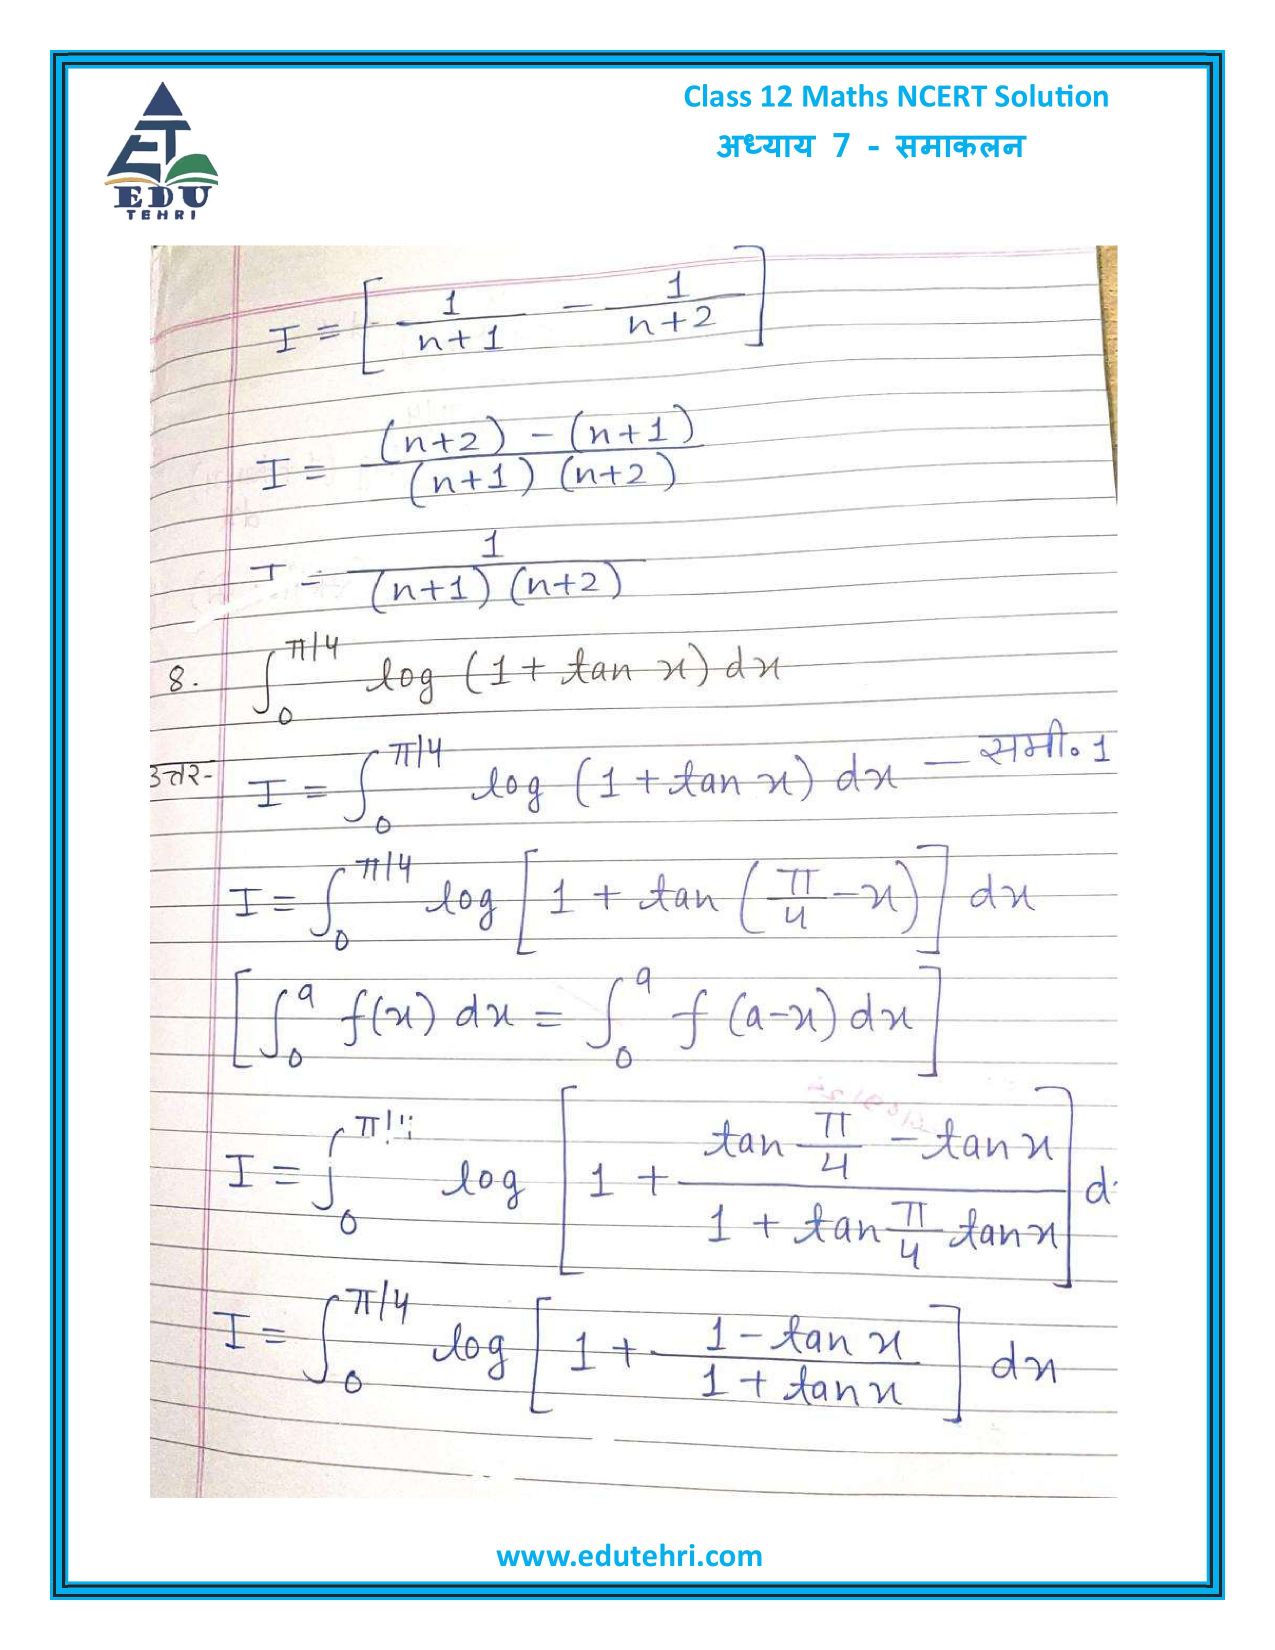 Class 12 Maths NCERT Solution
अध्याय 7 - समाकलन
EDU
TEHRI
I = [ 1/(n+1) - 1/(n+2) ]
I = ((n+2) - (n+1))/((n+1) (n+2))
I = 1/((n+1) (n+2))
8. ∫₀^(π/4) log (1 + tan x) dx
उत्तर- I = ∫₀^(π/4) log (1 + tan x) dx — समी० 1
I = ∫₀^(π/4) log [ 1 + tan (π/4 - x) ] dx
[ ∫₀^a f(x) dx = ∫₀^a f (a-x) dx ]
I = ∫₀^(π/4) log [ 1 + (tan π/4 - tan x)/(1 + tan π/4 tan x) ] d
I = ∫₀^(π/4) log [ 1 + (1 - tan x)/(1 + tan x) ] dx
www.edutehri.com